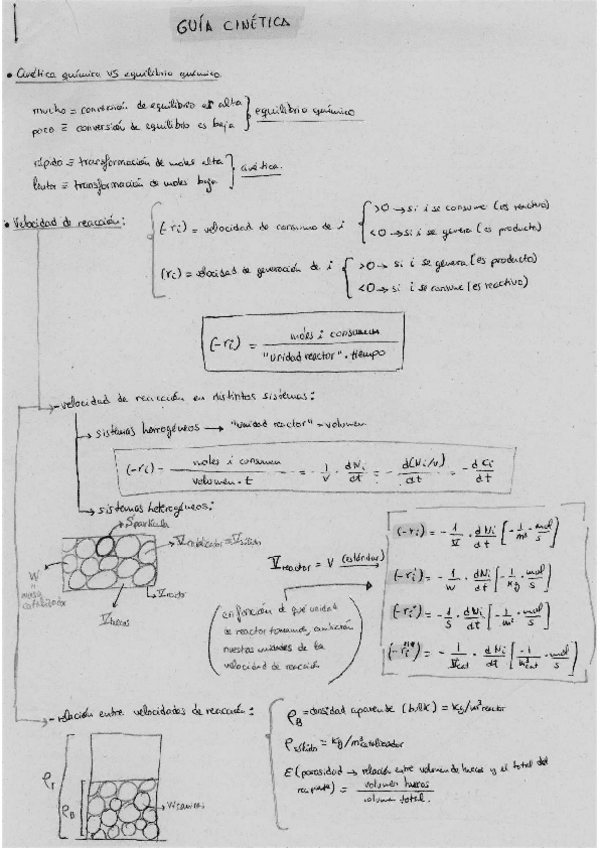 GUÍA CINÉTICA
• Cinética química VS equilibrio químico.
mucho ≡ conversión de equilibrio es alta
poco ≡ conversión de equilibrio es baja
equilibrio químico
rápido ≡ transformación de moles alta
lento ≡ transformación de moles baja
cinética.
• Velocidad de reacción:
(-ri) = velocidad de consumo de i
>0 → si i se consume (es reactivo)
<0 → si i se genera (es producto)
(ri) = velocidad de generación de i
>0 → si i se genera (es producto)
<0 → si i se consume (es reactivo)
(-ri) = moles i consumen / "unidad reactor" · tiempo
- velocidad de reacción en distintos sistemas:
→ sistemas homogéneos → "unidad reactor" = volumen
(-ri) = moles i consumen / volumen · t = - 1/V · dNi/dt = - d(Ni/V)/dt = - dCi/dt
→ sistemas heterogéneos:
S partícula
W = masa catalizador
V reactor
V huecos
V reactor = V (estándar)
(en función de qué unidad
de reactor tomamos, cambiarán
nuestras unidades de la
velocidad de reacción)
(-ri) = - 1/V · dNi/dt [- 1/m³ · mol/s]
(-ri) = - 1/W · dNi/dt [- 1/Kg · mol/s]
(-ri) = - 1/S · dNi/dt [- 1/m² · mol/s]
= - 1/Vcat · dNi/dt [- 1/m³cat · mol/s]
- relación entre velocidades de reacción:
ρB = densidad aparente (bulk) = Kg/m³reactor
ρsólido = Kg/m³catalizador
ε (porosidad → relación entre volumen de huecos y el total del
= volumen huecos / volumen total.
ρB